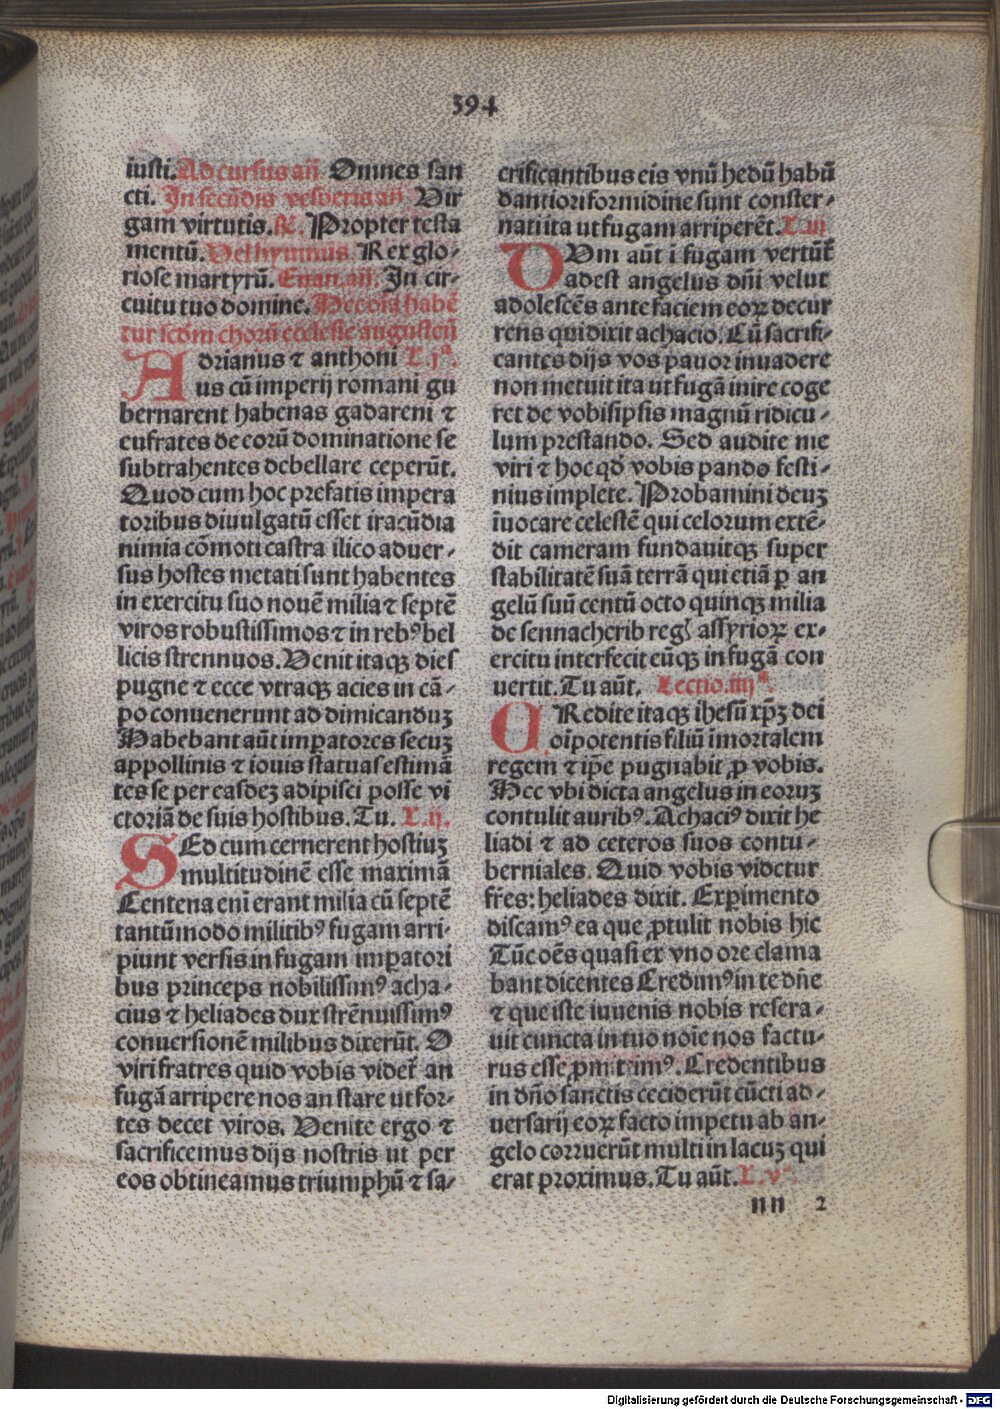 394
iusti. Ad cursus añ Omnes san
cti. In secūdis vesperis añ. Vir
gam virtutis. ℟. Propter testa
mentū. Vel hymnus. Rex glo-
riose martyrū. Euan. añ. In cir-
cuitu tuo domine. Hec oīa habē
tur scd̄m chorū ecclesie augusteñ
Adrianus ⁊ anthoni L. jª.
us cū imperij romani gu
bernarent habenas gadareni ⁊
eufrates de eorū dominatione se
subtrahentes debellare ceperūt.
Quod cum hoc prefatis impera
toribus diuulgatū esset iracūdia
nimia cōmoti castra ilico aduer-
sus hostes metati sunt habentes
in exercitu suo nouē milia ⁊ septē
viros robustissimos ⁊ in rebꝰ bel
licis strennuos. Venit itaqꝫ dies
pugne ⁊ ecce vtraqꝫ acies in cā-
po conuenerunt ad dimicanduꝫ
Habebant aūt imꝑatores secuꝫ
appollinis ⁊ iouis statuas estimā
tes se per easdeꝫ adipisci posse vi
ctoriā de suis hostibus. Tu. L. ij.
SEd cum cernerent hostiuꝫ
multitudinē esse maximā
Centena eni erant milia cū septē
tantūmodo militibꝰ fugam arri-
piunt versis in fugam imꝑatori
bus princeps nobilissimꝰ acha-
cius ⁊ heliades dux strēnuissimꝰ
conuersionē milibus dixerūt. O
viri fratres quid vobis videt᷑ an
fugā arripere nos an stare ut for-
tes decet viros. Venite ergo ⁊
sacrificemus dijs nostris ut per
eos obtineamus triumphū ⁊ sa-
crificantibus eis vnū hedū habū
dantiori formidine sunt conster-
nati ita ut fugam arriperēt. L. iij
DUm aūt i fugam vertūt᷑
adest angelus dñi velut
adolescēs ante faciem eoꝝ decur
rens qui dixit achacio. Cū sacrifi-
cantes dijs vos pauor inuadere
non metuit ita ut fugā inire coge
ret de vobis ipsis magnū ridicu-
lum prestando. Sed audite me
viri ⁊ hoc qd̓ vobis pando festi-
nius implete. Probamini deuꝫ
īuocare celestē qui celorum extē-
dit cameram fundauitqꝫ super
stabilitatē suā terrā qui etiā ꝑ an
gelū suū centū octo quinqꝫ milia
de sennacherib regꝭ assyrioꝝ ex-
ercitu interfecit eūqꝫ in fugā con
uertit. Tu aūt. Lectio. iiijª.
CRedite itaqꝫ ihesū xp̄ꝫ dei
oīpotentis filiū īmortalem
regem ⁊ ip̄e pugnabit ꝓ vobis.
Hec vbi dicta angelus in eoruꝫ
contulit auribꝰ. Achaciꝰ dixit he
liadi ⁊ ad ceteros suos contu-
berniales. Quid vobis videtur
fr̄es: heliades dixit. Exꝑimento
discamꝰ ea que ꝓtulit nobis hic
Tūc oēs quasi ex vno ore clama
bant dicentes Credimꝰ in te dñe
⁊ que iste iuuenis nobis resera-
uit cuncta in tuo noīe nos factu-
rus esse ꝓmittimꝰ. Credentibus
in dño sanctis ceciderūt cūcti ad-
uersarij eoꝝ facto impetu ab an-
gelo corruerūt multi in lacuꝫ qui
erat proximus. Tu aūt. L. vª.
nn 2
Digitalisierung gefördert durch die Deutsche Forschungsgemeinschaft - DFG